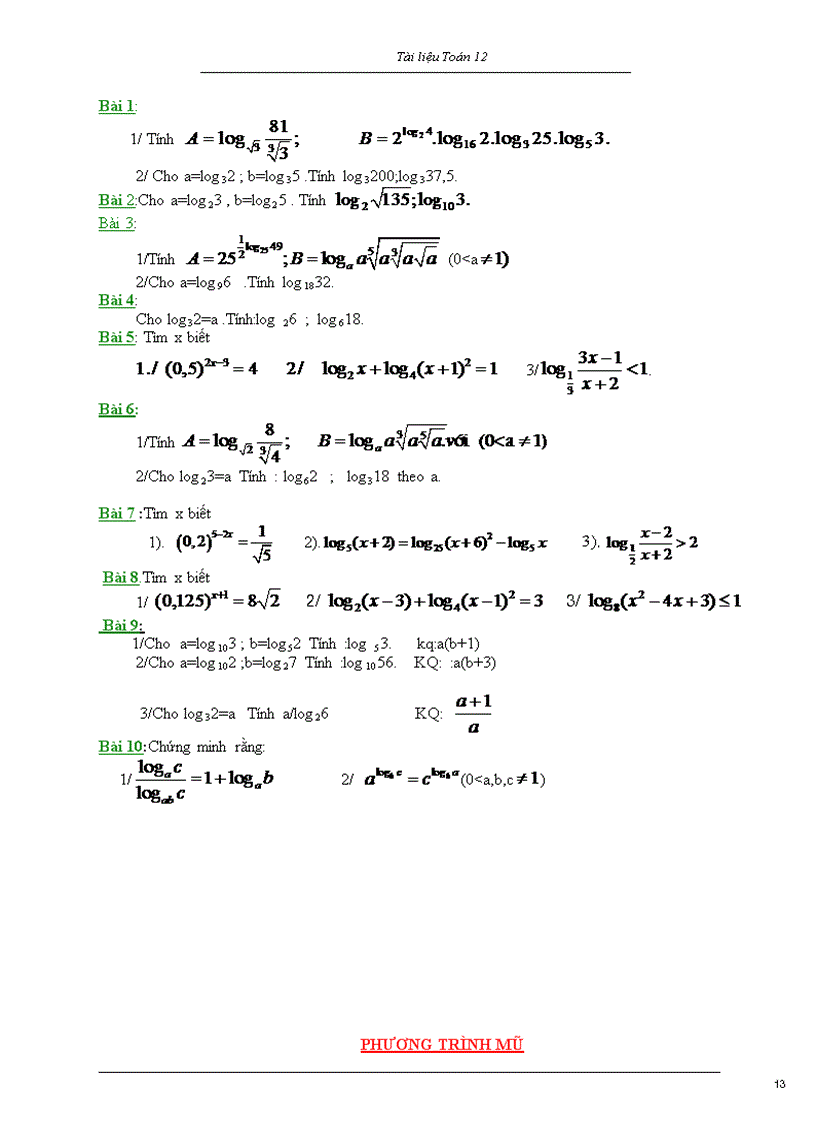 Tài liệu Toán 12
Bài 1:
1/ Tính A = log_{√3} 81/∛3; B = 2^{log_2 4}.log_{16} 2.log_3 25.log_5 3.
2/ Cho a=log₃2 ; b=log₃5 .Tính log₃200;log₃37,5.
Bài 2:Cho a=log₂3 , b=log₂5 . Tính log₂ √135;log₁₀3.
Bài 3:
1/Tính A = 25^{1/2 log_{25} 49}; B = log_a a⁵√(a³√(a√a)) (0<a ≠ 1)
2/Cho a=log₉6 .Tính log₁₈32.
Bài 4:
Cho log₃2=a .Tính:log ₂6 ; log₆18.
Bài 5: Tìm x biết
1./ (0,5)^{2x−3} = 4 2/ log₂ x + log₄(x + 1)² = 1 3/ log_{1/3} (3x − 1)/(x + 2) < 1.
Bài 6:
1/Tính A = log_{√2} 8/∛4; B = log_a a³√(a⁵√a).với (0<a ≠ 1)
2/Cho log₂3=a Tính : log₆2 ; log₃18 theo a.
Bài 7 :Tìm x biết
1). (0,2)^{5−2x} = 1/√5 2). log₅(x + 2) = log₂₅(x + 6)² − log₅ x 3). log_{1/2} (x − 2)/(x + 2) > 2
Bài 8.Tìm x biết
1/ (0,125)^{x+1} = 8√2 2/ log₂(x − 3) + log₄(x − 1)² = 3 3/ log₈(x² − 4x + 3) ≤ 1
Bài 9:
1/Cho a=log₁₀3 ; b=log₅2 Tính :log ₅3. kq:a(b+1)
2/Cho a=log₁₀2 ;b=log₂7 Tính :log ₁₀56. KQ: :a(b+3)
3/Cho log₃2=a Tính a/log₂6 KQ: (a + 1)/a
Bài 10:Chứng minh rằng:
1/ log_a c/log_{ab} c = 1 + log_a b 2/ a^{log_b c} = c^{log_b a} (0<a,b,c ≠ 1)
PHƯƠNG TRÌNH MŨ
13